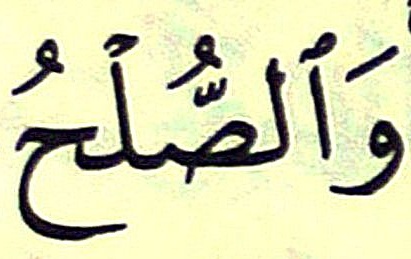 وَٱلصُّلْحُ